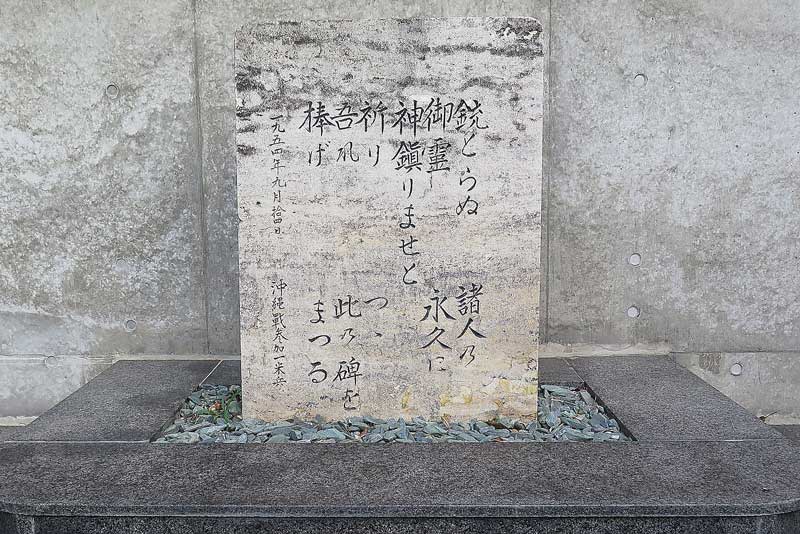 銃とらぬ 諸人乃
御靈 永久に
神鎭りませと
祈り つゝ
吾が 此乃碑を
棒げ まつる
一九五四年九月拾四日 沖縄戰参加一米兵